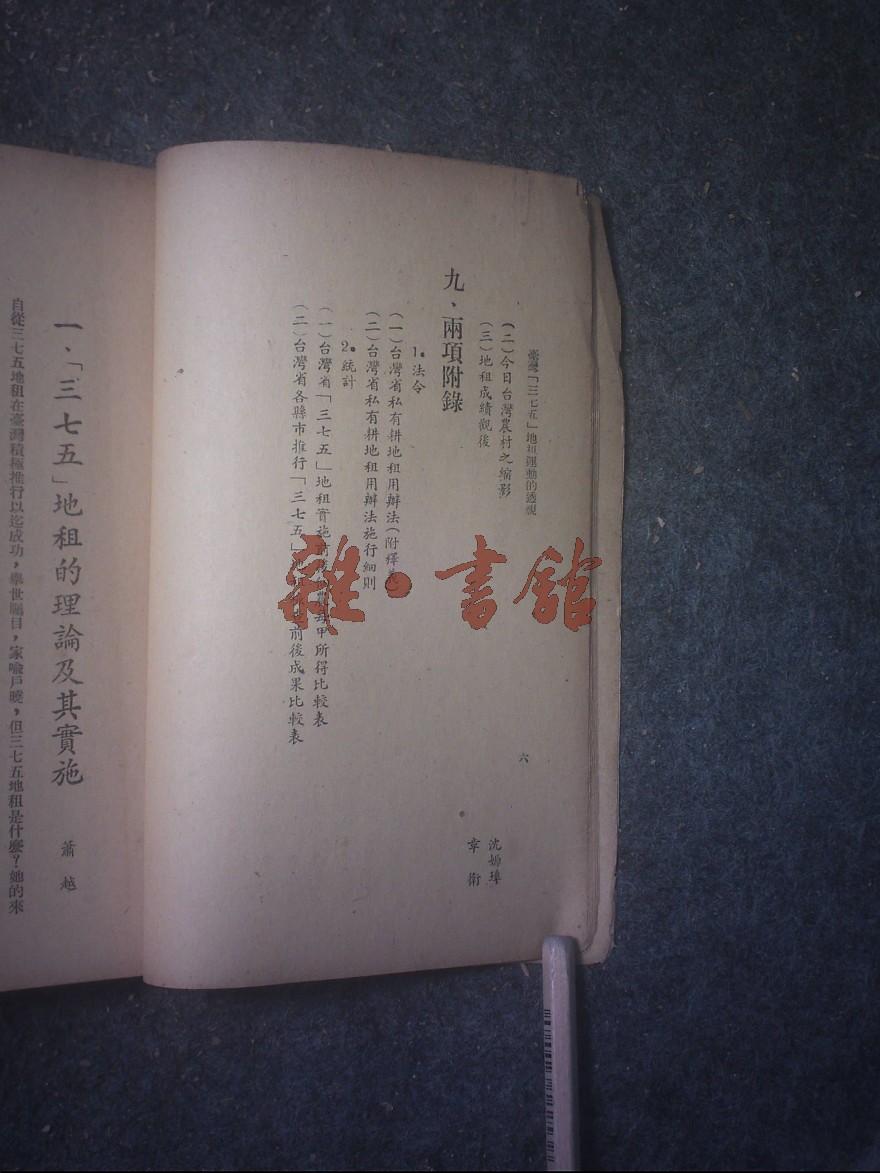 臺灣「三七五」地租運動的透視
六
(二)今日台灣農村之縮影
沈嫄璋
(三)地租成績觀後
章衡
九、兩項附錄
1.法令
(一)台灣省私有耕地租用辦法(附釋義)
(二)台灣省私有耕地租用辦法施行細則
2.統計
(一)台灣省「三七五」地租實施前後 每甲所得比較表
(二)台灣省各縣市推行「三七五」 前後成果比較表
一、「三七五」地租的理論及其實施
蕭越
自從三七五地租在臺灣積極推行以迄成功,舉世矚目,家喻戶曉,但三七五地租是什麼?她的來
雜·書館